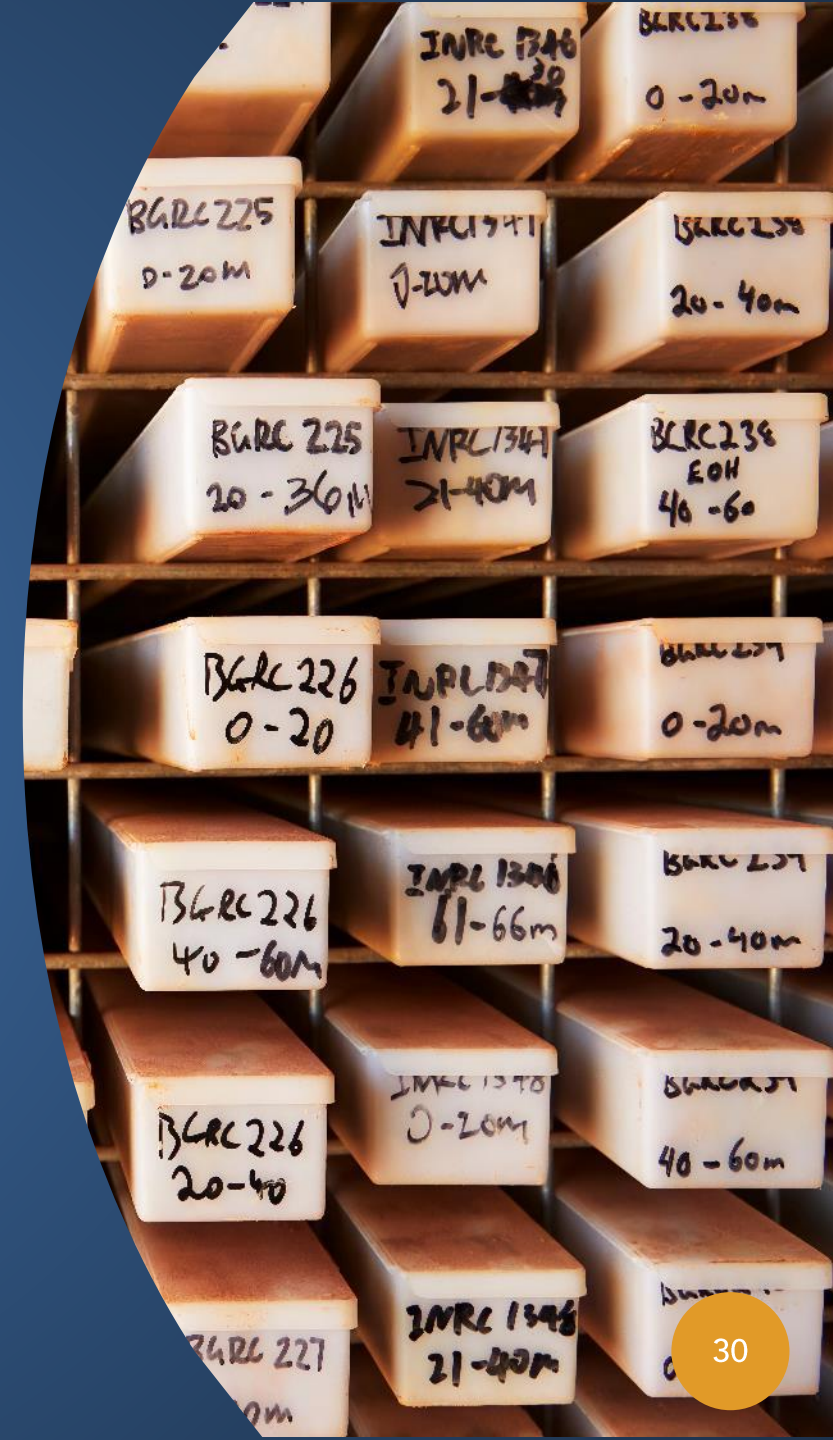 INRC 1346
30
21-
BGRC238
0 - 20m
BGRC225
0-20m
INRC1347
0-20m
BGRC238
20 - 40m
BGRC 225
20 - 36m
INRC1347
21-40m
BGRC238
EOH
40 - 60
BGRC 226
0 - 20
INRC1347
41-60m
0 - 20m
BGRC 226
40 - 60m
INRC
61-66m
20 - 40m
BGRC 226
20-40
0-20m
40 - 60m
BGRC 227
INRC 1348
21-40m
30